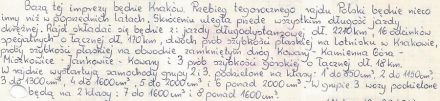 Bazą tej imprezy będzie Kraków. Przebieg tegorocznego rajdu Polski będzie nieco
inny niż w poprzednich latach. Skróceniu uległa przede wszystkim długość jazdy
okrężnej. Rajd składać się będzie z: jazdy długodystansowej dł. 2210 km, 16 odcinków
specjalnych o łącznej dł. 170 km, dwóch prób szybkości płaskiej na lotnisku w Krakowie,
próby szybkości płaskiej na obwodzie zamkniętym dróg Kowary - Kamienna Góra
Miszkowice - Jankowice - Kowary i 3 prób szybkości górskiej o łącznej dł. 18 km.
W rajdzie wystartują samochody grupy 2 i 3, podzielone na klasy: 1 do 850 cm³, 2 do 1150 cm³,
3 do 1300 cm³, 4 do 1600 cm³, 5 do 2000 cm³ i 6 ponad 2000 cm³. W grupie 3 wozy podzielone
będą na 2 klasy: 7 do 1600 cm³ i 8 ponad 1600 cm³.